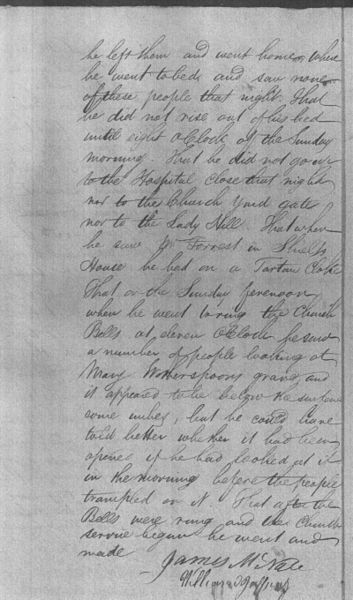 he left them and went home, where
he went to bed and saw none
of these people that night. That
he did not rise out of his bed
until eight OClock of the Sunday
morning. That he did not go
to the Hospital Close that night
nor to the Church Yard gate
nor to the Lady Hill. That when
he saw Mr Forrest in Shiells
House he had on a Tartan Cloke
That on the Sunday forenoon
when he went to ring the Church
Bells at eleven OClock he saw
a number of people looking at
Mary Witherspoons grave, and
it appeared to be below the surface
some inches, but he could have
told better whether it had been
opened if he had looked at it
in the morning before the people
trampled on it That after the
Bells were rung and the Church
service began he went and
made
James McNab
William